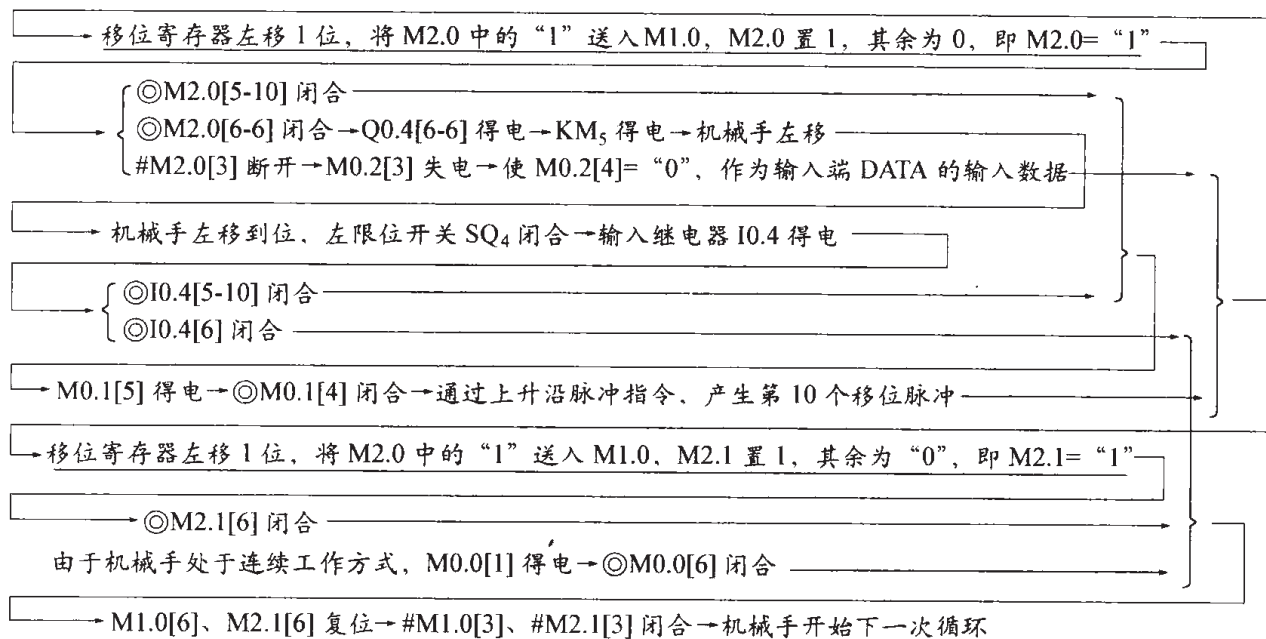 移位寄存器左移 1 位，将 M2.0 中的“1”送入 M1.0，M2.0 置 1，其余为 0，即 M2.0=“1”
◎M2.0[5-10] 闭合
◎M2.0[6-6] 闭合→Q0.4[6-6] 得电→KM₅ 得电→机械手左移
#M2.0[3] 断开→M0.2[3] 失电→使 M0.2[4]=“0”，作为输入端 DATA 的输入数据
机械手左移到位，左限位开关 SQ₄ 闭合→输入继电器 I0.4 得电
◎I0.4[5-10] 闭合
◎I0.4[6] 闭合
M0.1[5] 得电→◎M0.1[4] 闭合→通过上升沿脉冲指令、产生第 10 个移位脉冲
移位寄存器左移 1 位，将 M2.0 中的“1”送入 M1.0，M2.1 置 1，其余为“0”，即 M2.1=“1”
◎M2.1[6] 闭合
由于机械手处于连续工作方式，M0.0[1] 得电→◎M0.0[6] 闭合
M1.0[6]、M2.1[6] 复位→#M1.0[3]、#M2.1[3] 闭合→机械手开始下一次循环